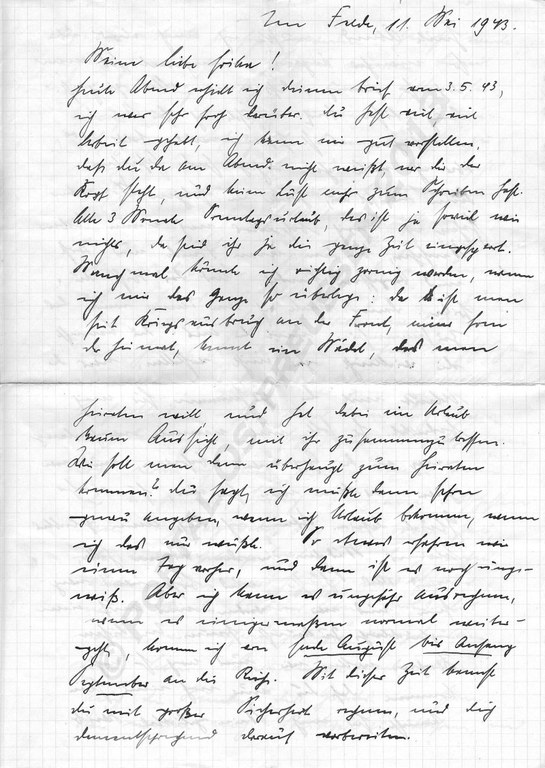 Im Felde, 11. Mai 1943.
Meine liebe Erika!
Heute Abend erhielt ich deinen Brief vom 3.5.43,
ich war sehr froh darüber. Du hast viel viel
Arbeit gehabt, ich kann mir gut vorstellen,
daß du da am Abend nicht weißt, wo dir der
Kopf steht, und keine Lust mehr zum Schreiben hast.
Alle 3 Wochen Sonntagsurlaub, das ist ja soviel wie
nichts, da seid ihr ja die ganze Zeit eingesperrt.
Manchmal könnte ich richtig zornig werden, wenn
ich mir das Ganze so überlege: da ist man
seit Kriegsausbruch an der Front, immer fern
der Heimat, kennt ein Mädel, das man
heiraten will und hat dabei im Urlaub
kaum Aussicht, mit ihr zusammenzutreffen.
Wie soll man denn überhaupt zum Heiraten
kommen? Du sagst, ich müßte dann schon
genau angeben, wann ich Urlaub bekomme, wenn
ich das nur wüßte. So etwas erfahren wir
einen Tag vorher, und dann ist es noch unge-
wiß. Aber ich kann es ungefähr ausrechnen,
wenn es einigermaßen normal weiter-
geht, komme ich von Ende August bis Anfang
September an die Reihe. Mit dieser Zeit kannst
du mit großer Sicherheit rechnen, und dich
dementsprechend darauf vorbereiten.